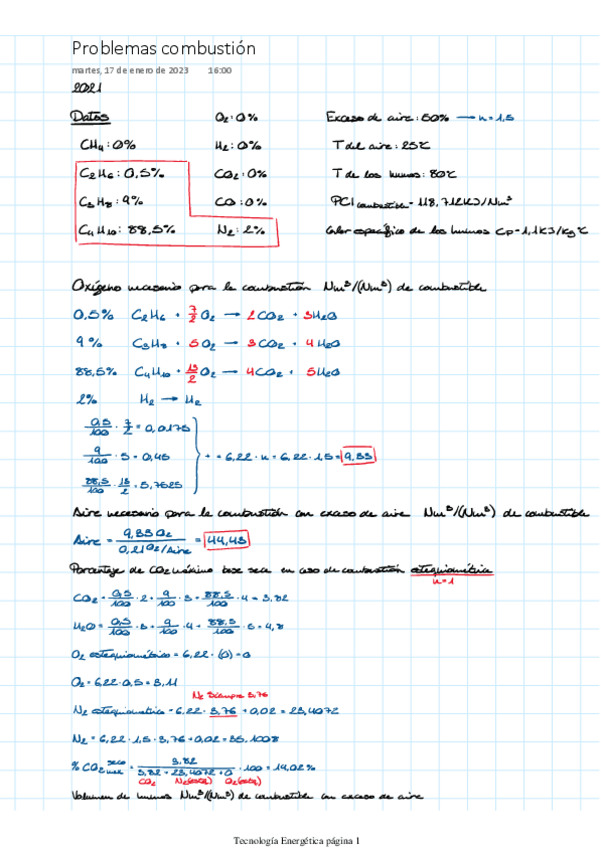 Problemas combustión
martes, 17 de enero de 2023 16:00
2021
Datos O₂: 0% Exceso de aire: 50% → n = 1,5
CH₄: 0% H₂: 0% T del aire: 25°C
C₂H₆: 0,5% CO₂: 0% T de los humos: 80°C
C₃H₈: 9% CO: 0% PCI combustible = 118,712 KJ/Nm³
C₄H₁₀: 88,5% N₂: 2% Calor específico de los humos Cp = 1,1 KJ/kg°C
Oxígeno necesario para la combustión Nm³/(Nm³) de combustible
0,5% C₂H₆ + 7/2 O₂ → 2CO₂ + 3H₂O
9% C₃H₈ + 5O₂ → 3CO₂ + 4H₂O
88,5% C₄H₁₀ + 13/2 O₂ → 4CO₂ + 5H₂O
2% N₂ → N₂
0,5/100 · 7/2 = 0,0175
9/100 · 5 = 0,45 + = 6,22 · n = 6,22 · 1,5 = 9,33
88,5/100 · 13/2 = 5,7525
Aire necesario para la combustión con exceso de aire Nm³/(Nm³) de combustible
Aire = 9,33 O₂ / 0,21 O₂/Aire = 44,43
Porcentaje de CO₂ máximo base seca en caso de combustión estequiométrica
n=1
CO₂ = 0,5/100 · 2 + 9/100 · 3 + 88,5/100 · 4 = 3,82
H₂O = 0,5/100 · 3 + 9/100 · 4 + 88,5/100 · 5 = 4,8
O₂ estequiométrico = 6,22 · (0) = 0
O₂ = 6,22 · 0,5 = 3,11
N₂ siempre 3,76
N₂ estequiometrica = 6,22 · 3,76 + 0,02 = 23,4072
N₂ = 6,22 · 1,5 · 3,76 + 0,02 = 35,1008
% CO₂ seco max = 3,82 / 3,82 + 23,4072 + 0 · 100 = 14,02%
CO₂ N₂(esteq) O₂(esteq)
Volumen de humos Nm³/(Nm³) de combustible con exceso de aire
Tecnología Energética página 1